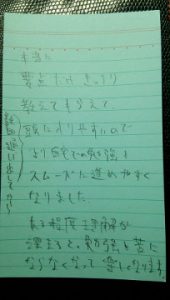 本当に
要点だけ きっちり
教えてもらえて、
頭に入りやすいので
より自宅での勉強も
スムーズに進めやすく
なりました。
ある程度 理解が
深まると、勉強も苦に
ならなくなって 楽しくなります。